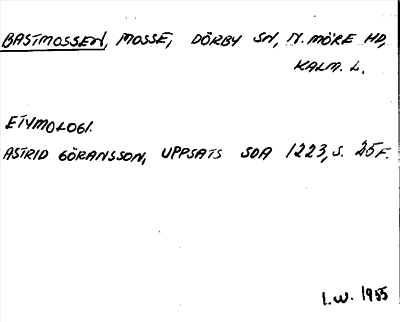 BASTMOSSEN, MOSSE, DÖRBY SN, N. MÖRE HD,
KALM. L.
ETYMOLOGI.
ASTRID GÖRANSSON, UPPSATS SOA 1223, S. 25 F.
I.W. 1955